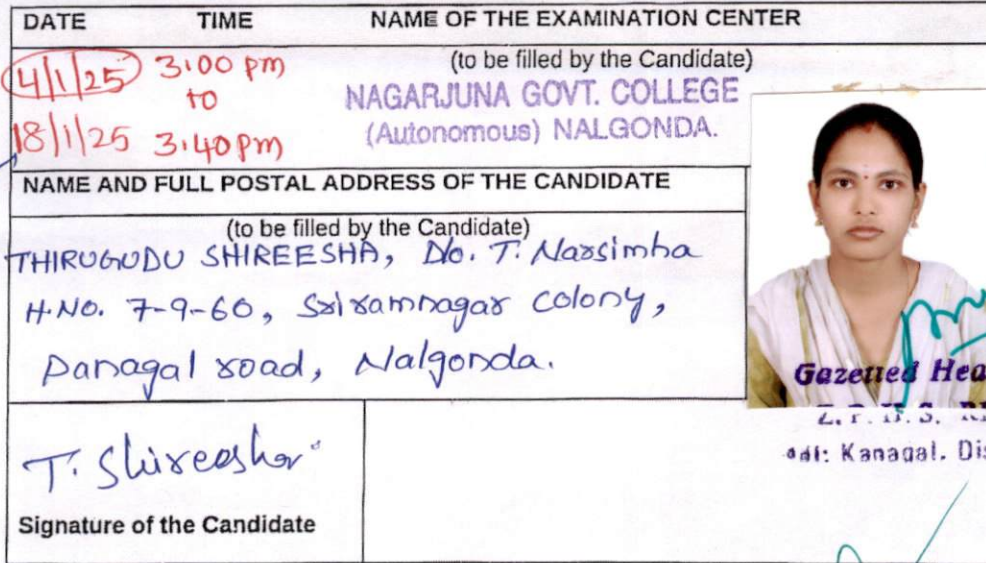 DATE TIME NAME OF THE EXAMINATION CENTER
(to be filled by the Candidate)
4/1/25 3.00 pm
to
18/1/25 3.40 pm
NAGARJUNA GOVT. COLLEGE
(Autonomous) NALGONDA.
NAME AND FULL POSTAL ADDRESS OF THE CANDIDATE
(to be filled by the Candidate)
THIRUGUDU SHIREESHA, D/o. T. Narsimha
H.No. 7-9-60, Sriramnagar colony,
Panagal road, Nalgonda.
Gazetted Hea
Z. P. H. S.
Kanagal. Dis
T. Shireesha
Signature of the Candidate